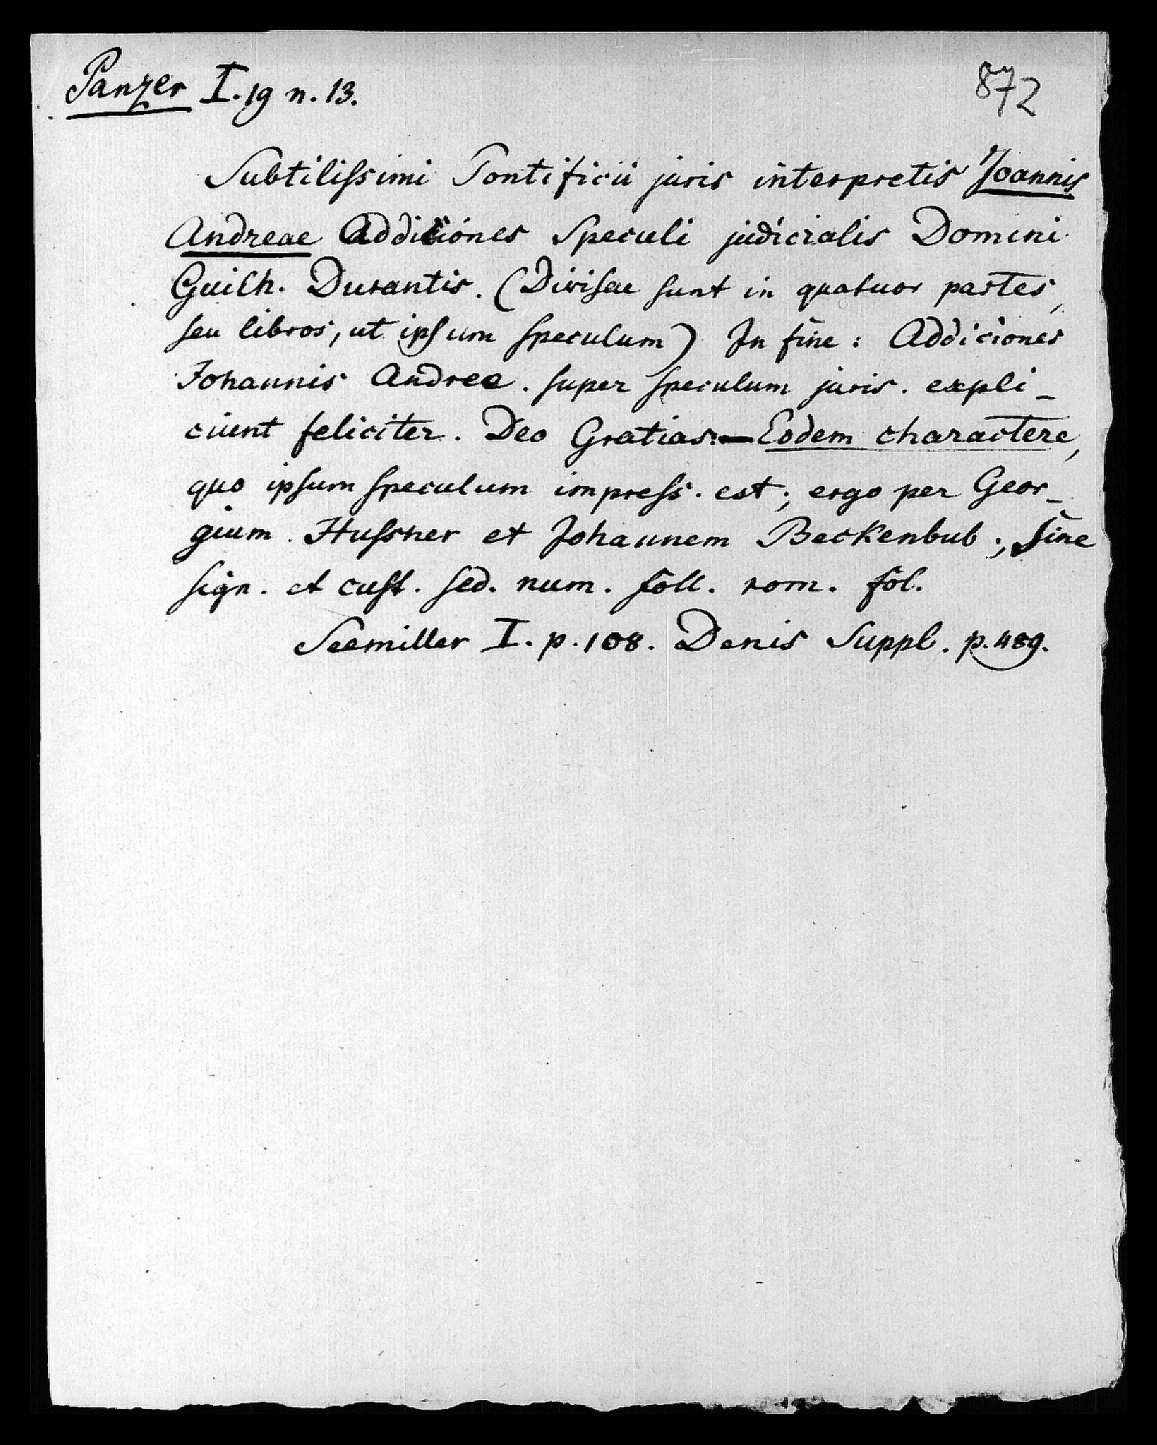 Panzer I. 19 n. 13.
872
Subtilissimi Pontificii juris interpretis Joannis
Andreae Addiciones Speculi judicialis Domini
Guilh. Durantis. (Divisae sunt in quatuor partes,
seu libros, ut ipsum speculum) In fine: Addiciones
Johannis Andree. super speculum juris. expli-
ciunt feliciter. Deo Gratias.— Eodem charactere,
quo ipsum speculum impress. est; ergo per Geor-
gium Hussner et Johannem Beckenhub; sine
sign. et cust. sed. num. foll. rom. fol.
Seemiller I. p. 108. Denis Suppl. p. 489.